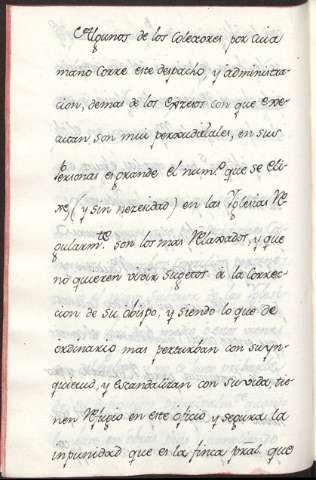 Algunos de los Colectores por cuia
mano corre este despacho, y administra-
cion, demas de los excesos con que exe-
cutan, son mui perxudiciales, en sus
Personas es grande el num.º que se eli-
xe, (y sin nezesidad) en las Yglesias Re-
gularm.te son los mas Relaxados, y que
no quieren vivir sugetos a la correc-
cion de su obispo, y siendo lo que de
ordinario mas perturban con su yn-
quietud, y escandalizan con su vida, tie-
nen Refugio en este oficio, y segura la
inpunidad que es la finca pral. que